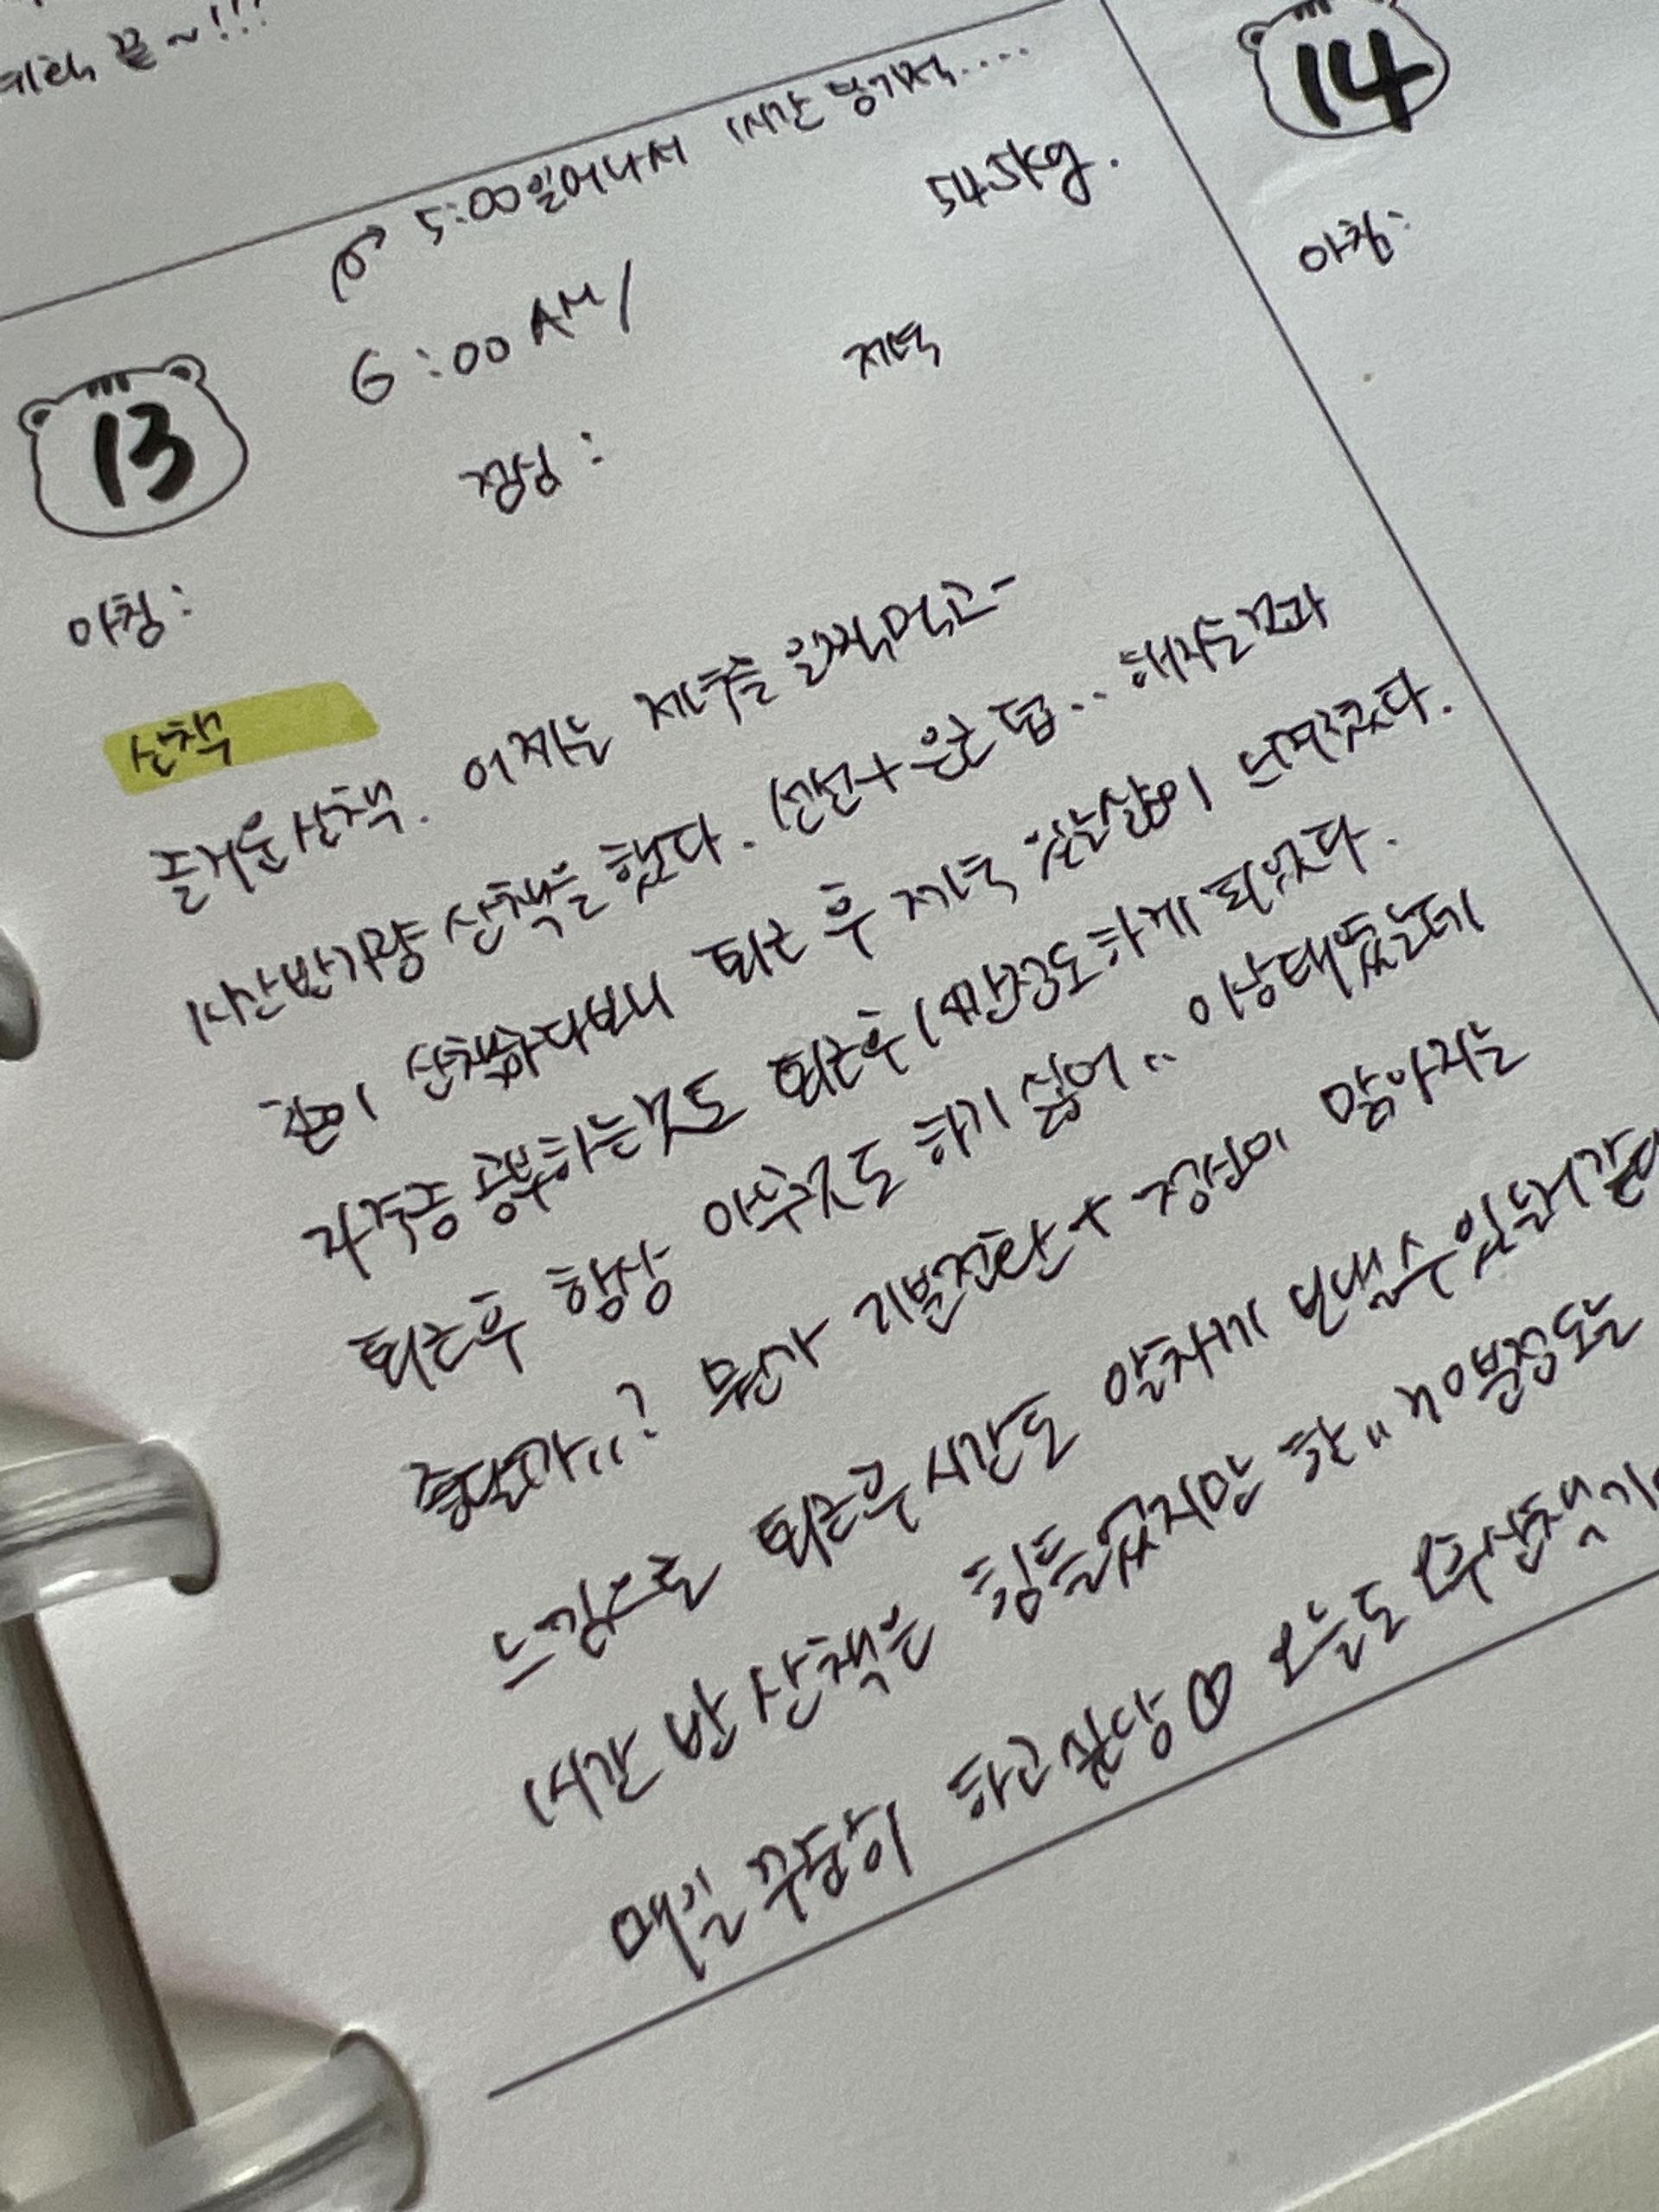 끝~!!!
5:00 일어나서 1시간 뭉기적....
13
6:00 AM/
54.5kg.
점심:
저녁
아침:
산책
즐거운 산책. 어제는 저녁을 일찍 먹고-
1시간 반가량 산책을 했다. (선선+은근 덥.. 해지는 것과
같이 산책하다보니 퇴근 후 저녁 있는 삶이 느껴졌다.
자격증 공부하는 것도 퇴근 후 1시간 정도 하게 되었다.
퇴근 후 항상 아무것도 하기 싫어.. 이 상태였는데
좋단가..? 뭔가 기분전환 + 정신이 맑아지는
느낌으로 퇴근 후 시간도 알차게 보낼 수 있는거 같다
1시간 반 산책은 힘들겠지만 한.. 30분 정도는
매일 꾸준히 하고싶당♡ 오늘도
14
아침: